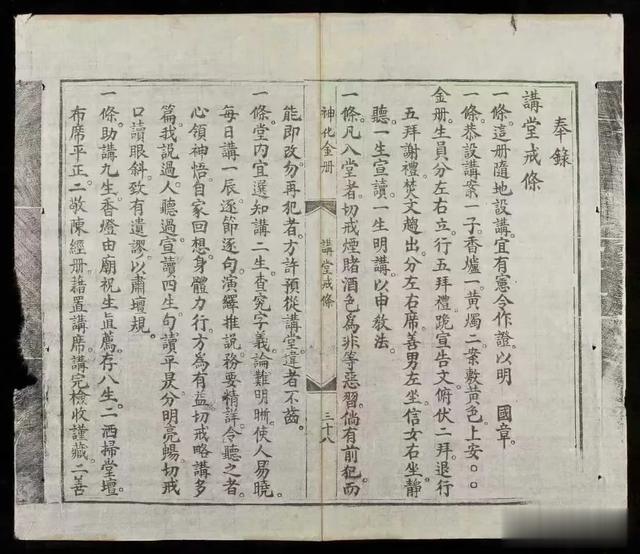 奉錄
講堂戒條
一條。這册隨地設講。宜有憲令作證。以明 國章。
一條。恭設講案一。子香爐一。黃燭二。案敷黃色。上安○○
金册。生員分左右立。行五拜禮。跪宣告文。俯伏二拜。退行
五拜謝禮。焚文趨出。分左右席。善男左坐。信女右坐。靜
聽。一生宣讀。一生明講。以申敎法。
一條。凡入堂者。切戒煙賭酒色。爲非等惡習。倘有前犯。而
神化金册 講堂戒條 三十八
能即改。勿再犯者。方許預從講堂。違者不齒。
一條。堂內宜選知講二生。查究字義。論難明晰。使人易曉。
每日講一辰。逐節逐句。演繹推說。務要精詳。令聽之者。
心領神悟。自家回想。身體力行。方爲有益。切戒略講多
篇。我說過。人聽過。宣讀四生。句讀平戾。分明亮暢。切戒
口讀眼斜。致有遺謬。以肅壇規。
一條。助講九生。香燈由廟祝生眞薦。存八生。二洒掃堂壇。
布席平正。二敬陳經册。藉置講席。講完檢收謹藏。二善